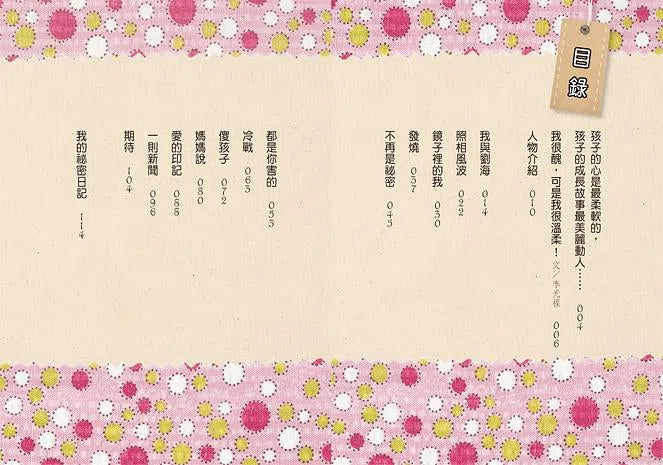 目錄
孩子的心是最柔軟的，
孩子的成長故事最美麗動人…… 004
我很醜，可是我很溫柔！文／李光福 006
人物介紹 010
我與劉海 014
照相風波 022
鏡子裡的我 030
發燒 037
不再是祕密 045
都是你害的 053
冷戰 063
傻孩子 072
媽媽說 080
愛的印記 088
一則新聞 096
期待 104
我的祕密日記 114